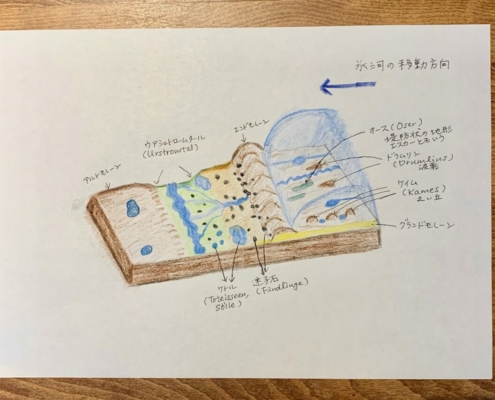 氷河の移動方向
オース(Oser)
堤防状の地形
エスカーともいう
ドラムリン
(Drumlins)
波丘
ケイム
(Kames)
丸い丘
グランドモレーン
エンドモレーン
ウアシュトロームタール
(Urstromtal)
アルトモレーン
ケトル
(Toteisseen,
Sölle)
迷子石
(Findlinge)